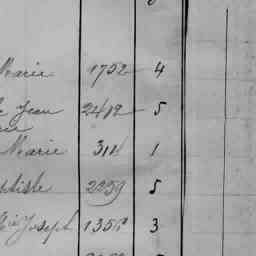 Marie 1752 4
Jean 2419 5
Marie 311 1
ptiste 2259 5
Joseph 1355 3